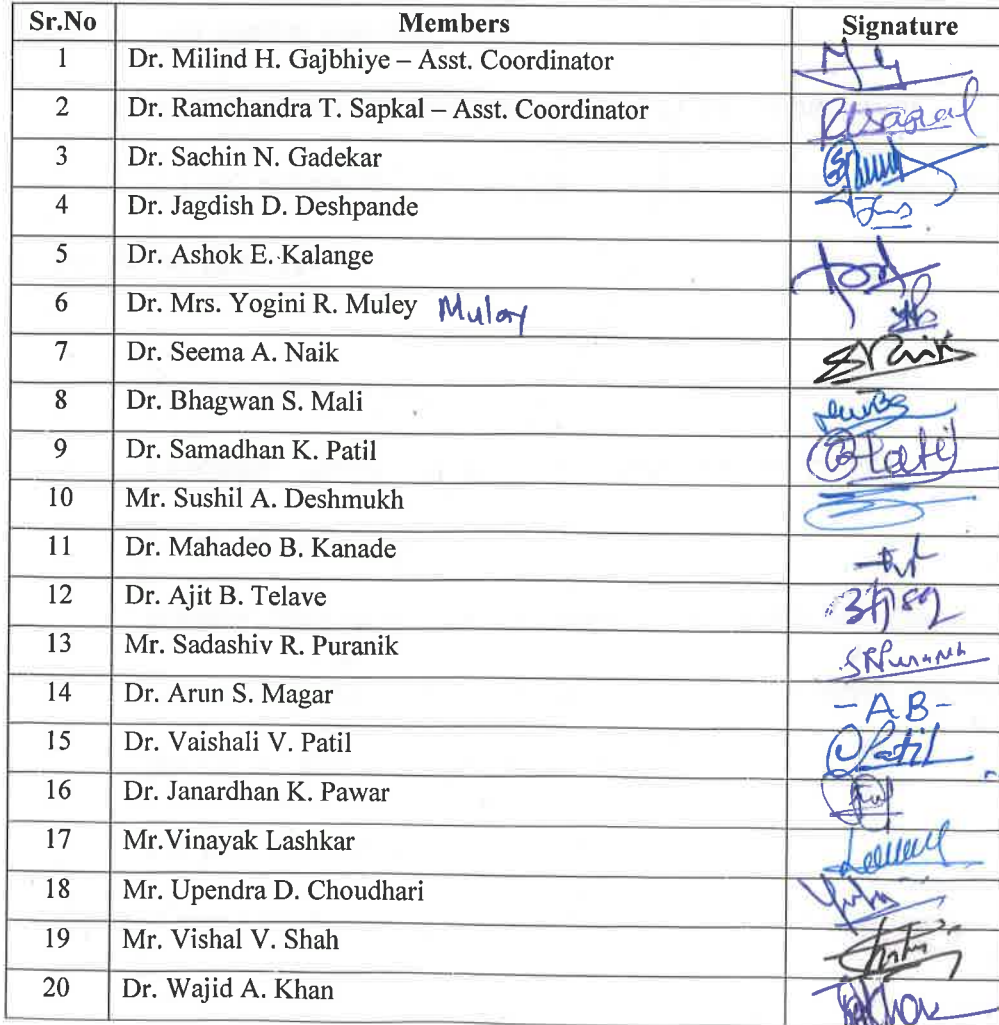 Sr.No Members Signature
1 Dr. Milind H. Gajbhiye – Asst. Coordinator
2 Dr. Ramchandra T. Sapkal – Asst. Coordinator
3 Dr. Sachin N. Gadekar
4 Dr. Jagdish D. Deshpande
5 Dr. Ashok E. Kalange
6 Dr. Mrs. Yogini R. Muley Mulay
7 Dr. Seema A. Naik
8 Dr. Bhagwan S. Mali
9 Dr. Samadhan K. Patil Patil
10 Mr. Sushil A. Deshmukh
11 Dr. Mahadeo B. Kanade
12 Dr. Ajit B. Telave
13 Mr. Sadashiv R. Puranik
14 Dr. Arun S. Magar -AB-
15 Dr. Vaishali V. Patil Patil
16 Dr. Janardhan K. Pawar
17 Mr.Vinayak Lashkar
18 Mr. Upendra D. Choudhari
19 Mr. Vishal V. Shah
20 Dr. Wajid A. Khan